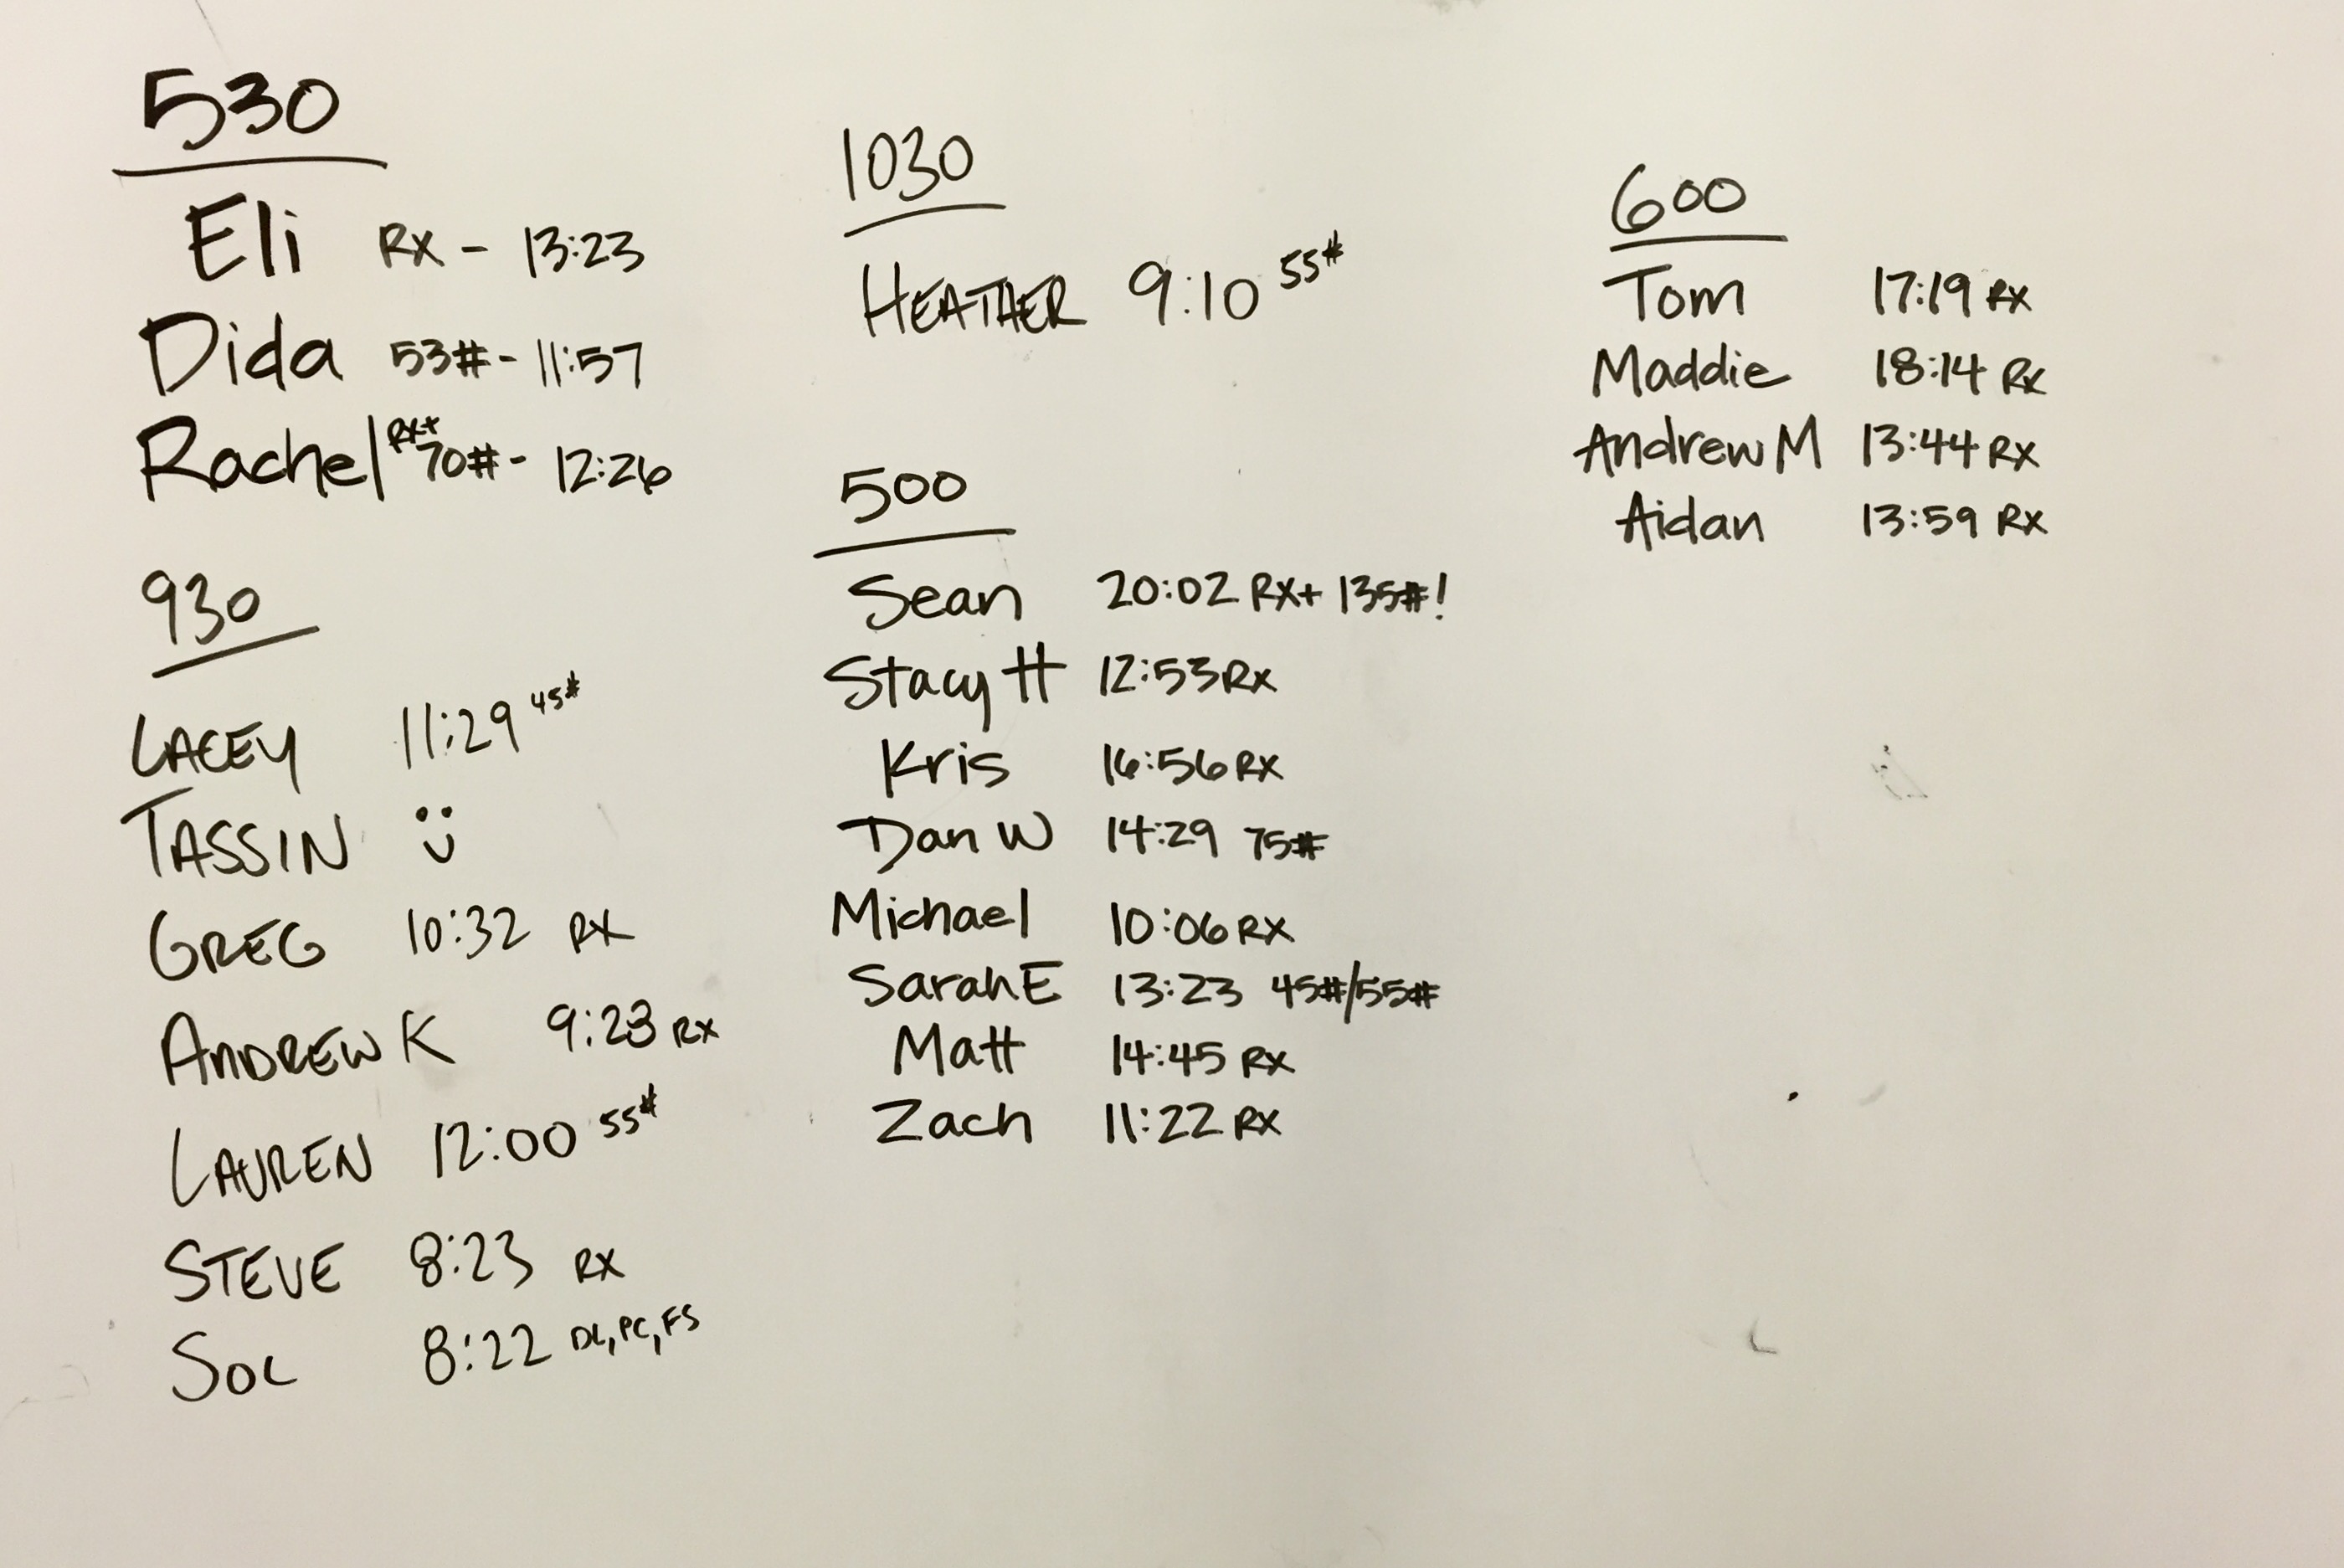 530
Eli RX - 13:23
Dida 53# - 11:57
Rachel RX+ 70# - 12:26
930
LACEY 11:29 45#
TASSIN
GREG 10:32 RX
ANDREW K 9:23 RX
LAUREN 12:00 55#
STEVE 8:23 RX
SOL 8:22 DL, PC, FS
1030
HEATHER 9:10 55#
500
Sean 20:02 RX+ 135#!
Stacy H 12:53 RX
Kris 16:56 RX
Dan W 14:29 75#
Michael 10:06 RX
Sarah E 13:23 45#/55#
Matt 14:45 RX
Zach 11:22 RX
600
Tom 17:19 RX
Maddie 18:14 RX
Andrew M 13:44 RX
Aidan 13:59 RX